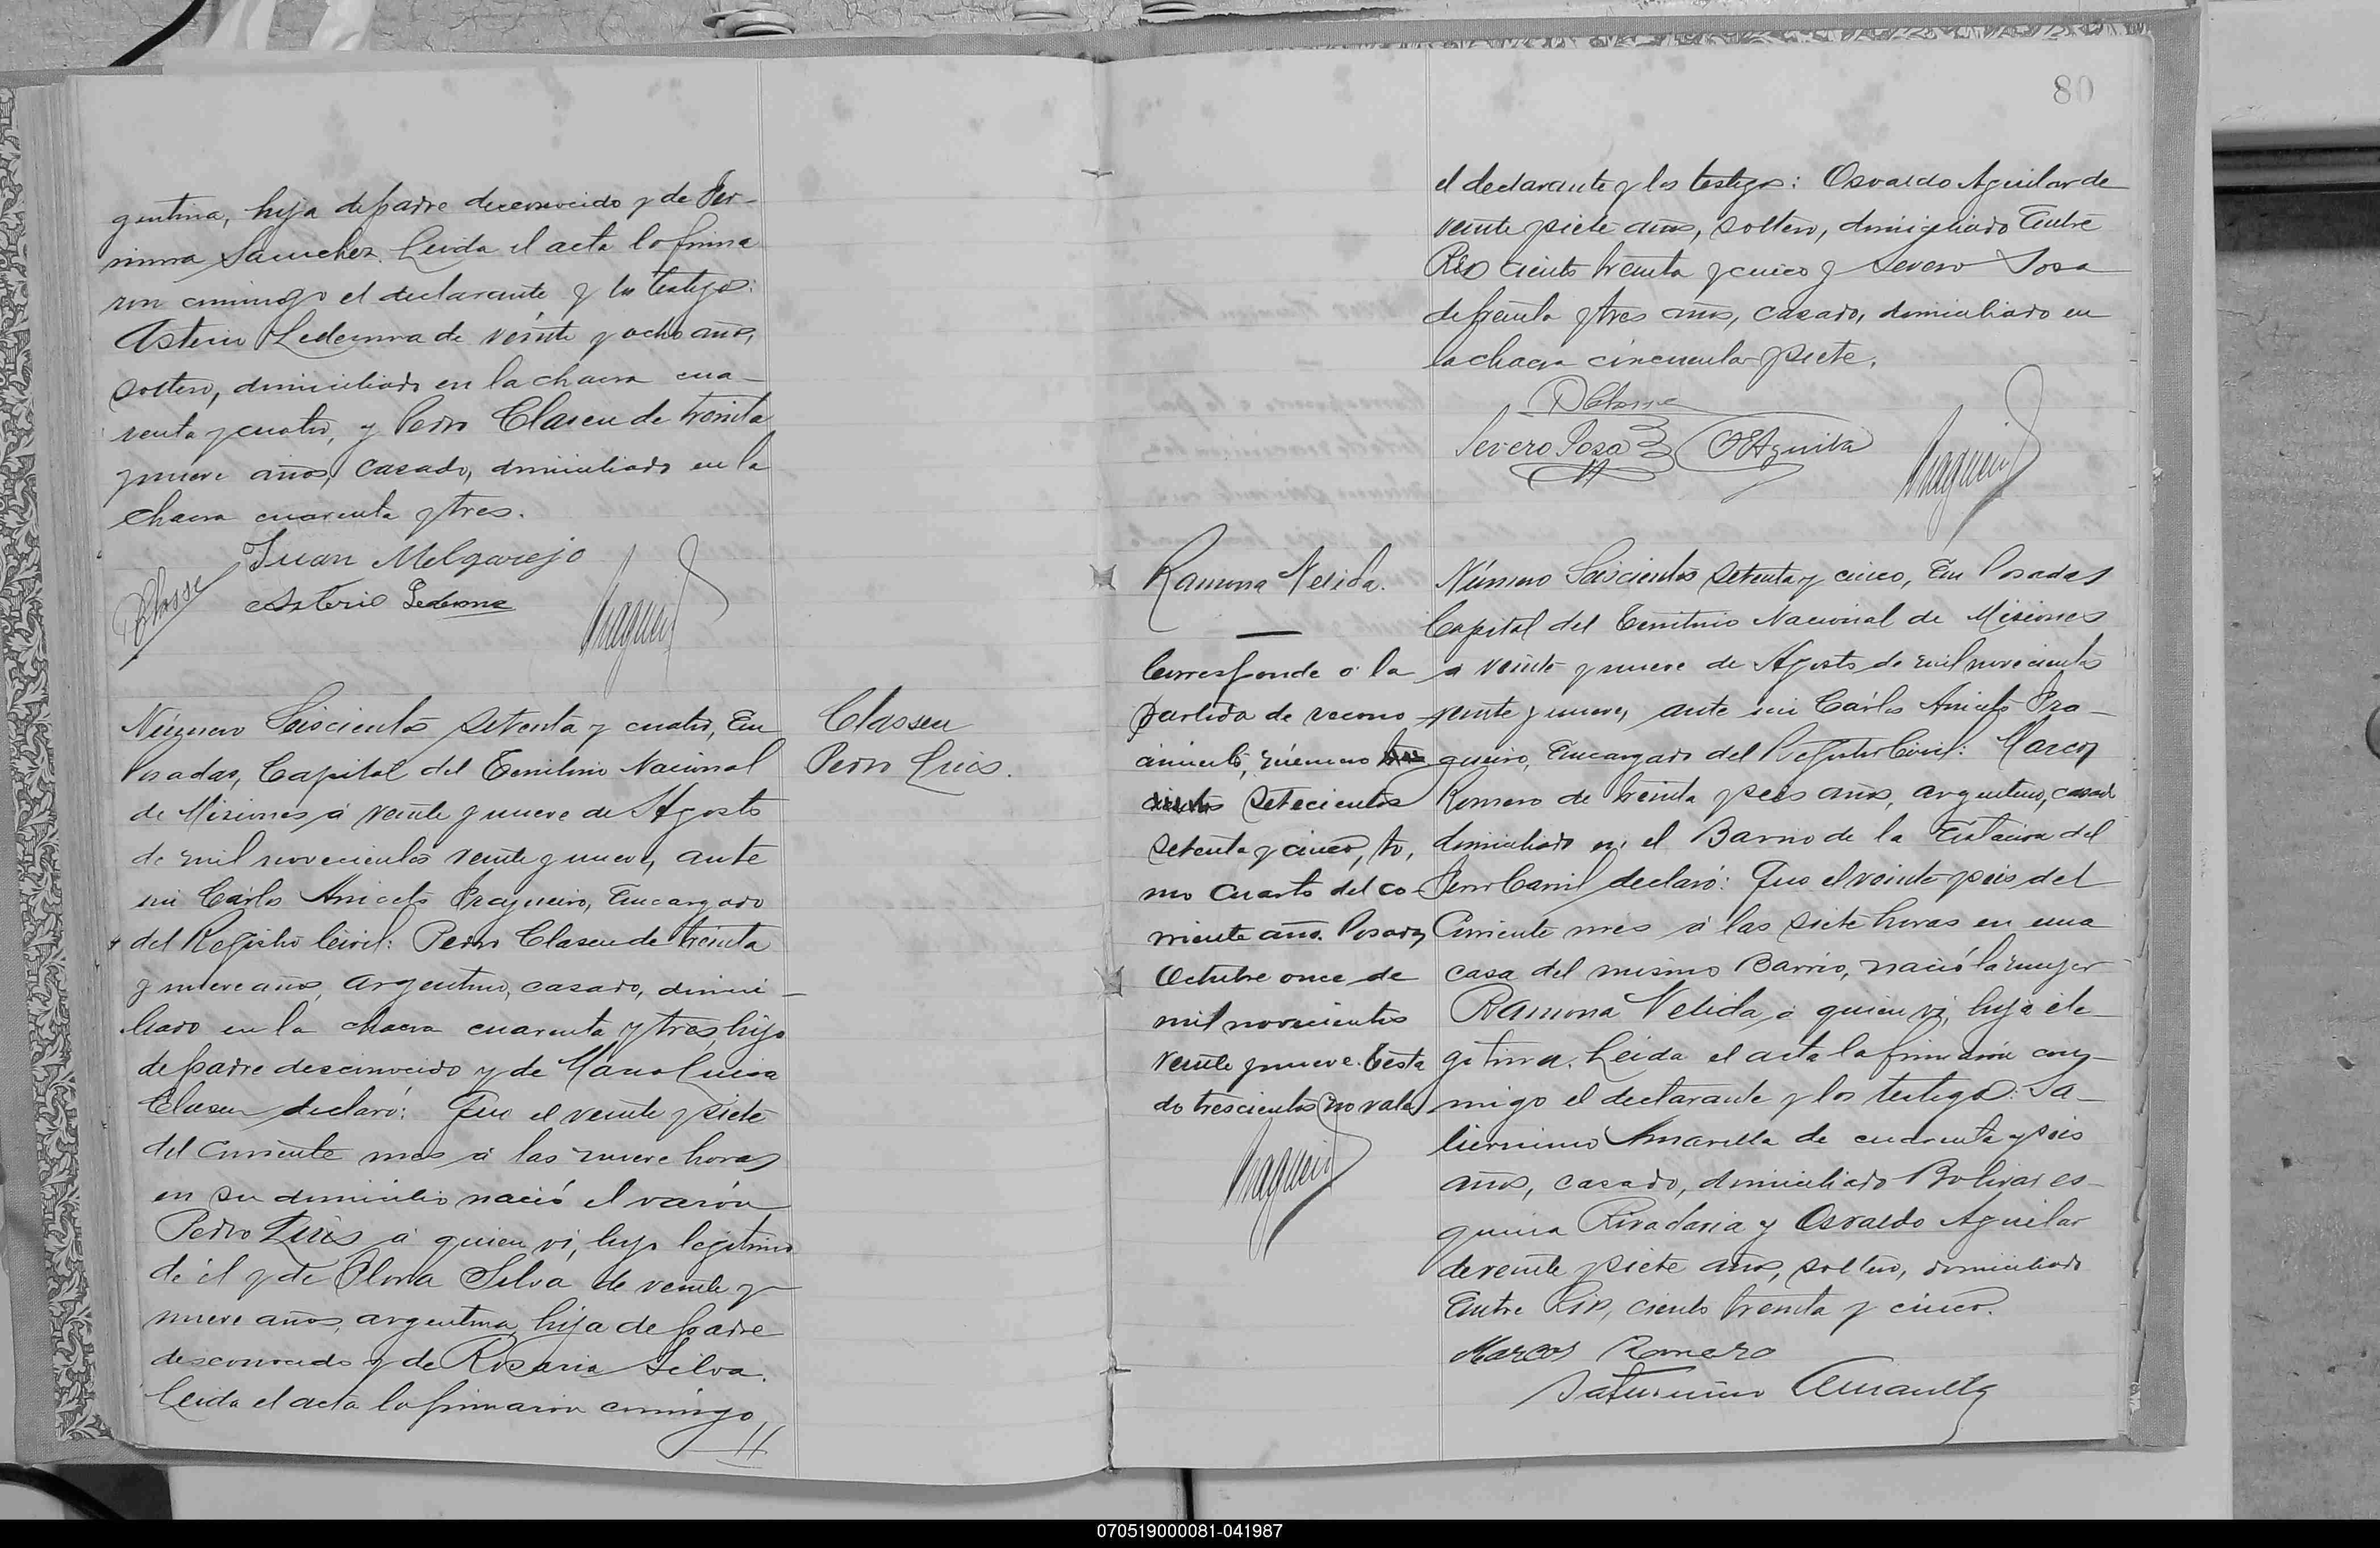 gentina, hija de padre desconocido y de Fer-
mina Sanchez. Leida el acta la firma
ron conmigo el declarante y los testigos:
Asterio Ledesma de veinte y ocho años,
soltero, domiciliado en la chacra cua-
renta y cuatro, y Pedro Clasen de treinta
y nueve años, casado, domiciliado en la
chacra cuarenta y tres.
Juan Melgarejo
Asterio Ledesma
Número Seiscientos setenta y cuatro, En
Posadas, Capital del Territorio Nacional
de Misiones á veinte y nueve de Agosto
de mil novecientos veinte y nueve, ante
mi Cárlos Aniceto Fragueiro, Encargado
del Registro Civil: Pedro Clasen de treinta
y nueve años, argentino, casado, domici-
liado en la chacra cuarenta y tres, hijo
de padre desconocido y de María Luisa
Clasen declaró: Que el veinte y siete
del corriente mes á las nueve horas
en su domicilio nació el varón
Pedro Luis á quien vi, hijo legítimo
de él y de Silva de veinte y
nueve años, argentina, hija de padre
desconocido y de Rosaria Silva.
Leida el acta la firmaron conmigo,
Classen
Pedro Luis.
80
el declarante y los testigos: Osvaldo Aguilar de
veinte y siete años, soltero, domiciliado Entre
Rios ciento treinta y cinco y Severo Sosa
de treinta y tres años, casado, domiciliado en
la chacra cincuenta y siete.
Severo Sosa
Ramona Nelida.
Corresponde á la
partida de recono
cimiento, número
setecientos
setenta y cinco, to,
mo cuarto del co-
rriente año. Posadas
Octubre once de
mil novecientos
veinte y nueve. Testa
do trescientos no vale
Número Seiscientos setenta y cinco, En Posadas
Capital del Territorio Nacional de Misiones
á veinte y nueve de Agosto de mil novecientos
veinte y nueve, ante mi Cárlos Aniceto Fra-
gueiro, Encargado del Registro Civil: Marcos
Romero de treinta y seis años, argentino, casado
domiciliado en el Barrio de la Estación del
Ferro Carril declaró: Que el veinte y seis del
Corriente mes á las siete horas en una
casa del mismo Barrio, nació la mujer
Ramona Nelida á quien vi, hija ile-
gitima. Leida el acta la firmaron con-
migo el declarante y los testigos: Sa-
Amarilla de cuarenta y seis
años, casado, domiciliado Bolivar es-
quina Rivadavia y Osvaldo Aguilar
de veinte y siete años, soltero, domiciliado
Entre Rios, ciento treinta y cinco.
Marcos Romero
Saturnino
070519000081-041987